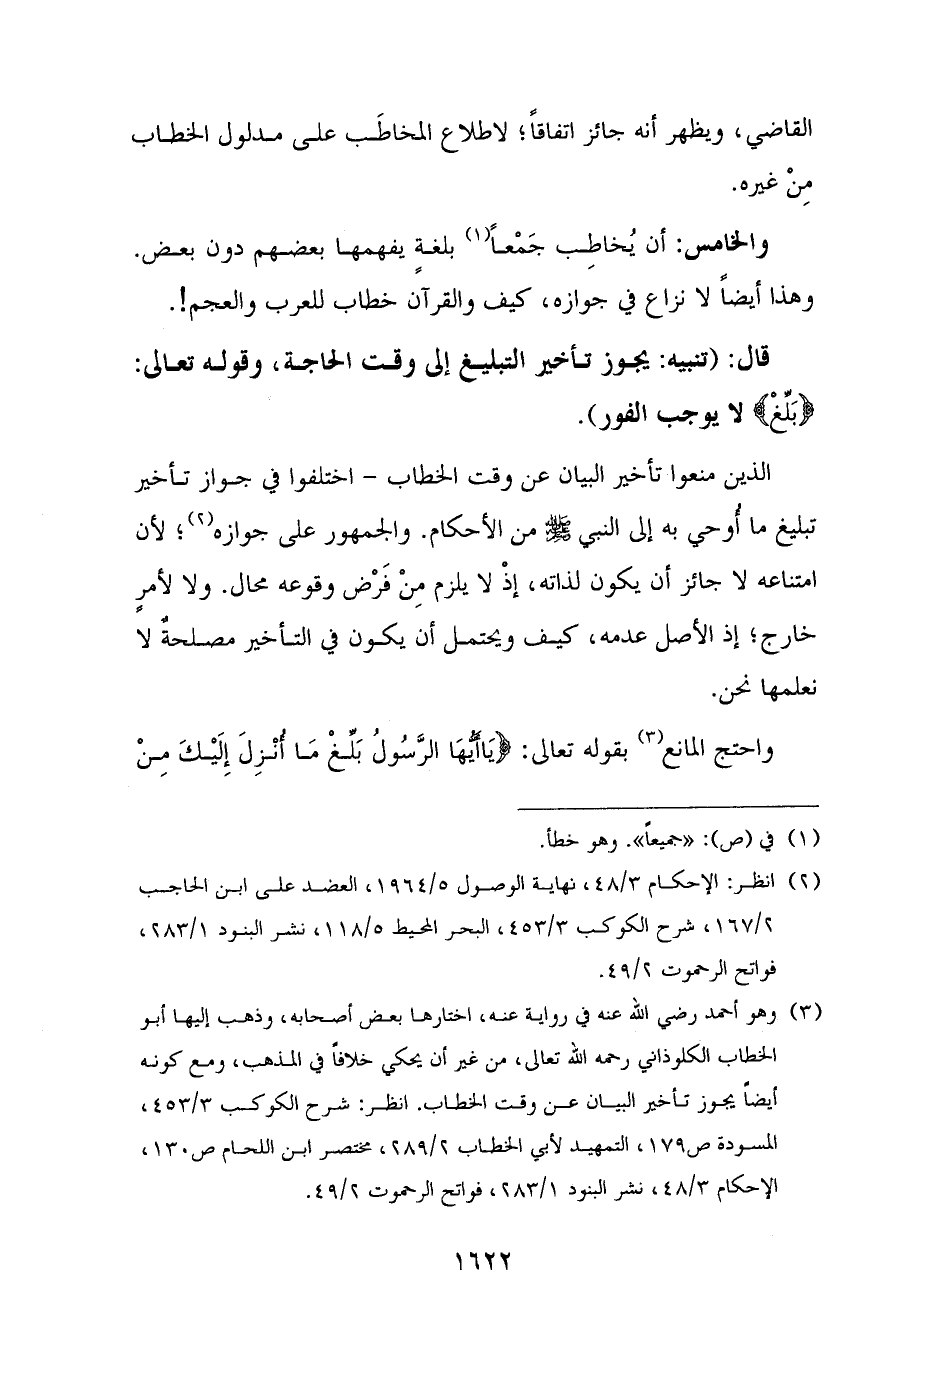 القاضي، ويظهر أنه جائز اتفاقاً؛ لاطلاع المخاطَب على مدلول الخطاب
مِنْ غيره.
والخامس: أن يُخاطِب جَمْعاً(١) بلغةٍ يفهمها بعضهم دون بعض.
وهذا أيضاً لا نزاع في جوازه، كيف والقرآن خطاب للعرب والعجم!.
قال: (تنبيه: يجوز تأخير التبليغ إلى وقت الحاجة، وقوله تعالى:
﴿بَلِّغْ﴾ لا يوجب الفور).
الذين منعوا تأخير البيان عن وقت الخطاب – اختلفوا في جواز تأخير
تبليغ ما أُوحي به إلى النبي ﷺ من الأحكام. والجمهور على جوازه(٢)؛ لأن
امتناعه لا جائز أن يكون لذاته، إذْ لا يلزم مِنْ فَرْض وقوعه محال. ولا لأمرٍ
خارج؛ إذ الأصل عدمه، كيف ويحتمل أن يكون في التأخير مصلحةٌ لا
نعلمها نحن.
واحتج المانع(٣) بقوله تعالى: ﴿يَاأَيُّهَا الرَّسُولُ بَلِّغْ مَا أُنْزِلَ إِلَيْكَ مِنْ
(١) في (ص): «جميعاً». وهو خطأ.
(٢) انظر: الإحكام ٤٨/٣، نهاية الوصول ١٩٦٤/٥، العضد على ابن الحاجب
١٦٧/٢، شرح الكوكب ٤٥٣/٣، البحر المحيط ١١٨/٥، نشر البنود ٢٨٣/١،
فواتح الرحموت ٤٩/٢.
(٣) وهو أحمد رضي الله عنه في رواية عنه، اختارها بعض أصحابه، وذهب إليها أبو
الخطاب الكلوذاني رحمه الله تعالى، من غير أن يحكي خلافاً في المذهب، ومع كونه
أيضاً يجوز تأخير البيان عن وقت الخطاب. انظر: شرح الكوكب ٤٥٣/٣،
المسودة ص١٧٩، التمهيد لأبي الخطاب ٢٨٩/٢، مختصر ابن اللحام ص١٣٠،
الإحكام ٤٨/٣، نشر البنود ٢٨٣/١، فواتح الرحموت ٤٩/٢.
١٦٢٢